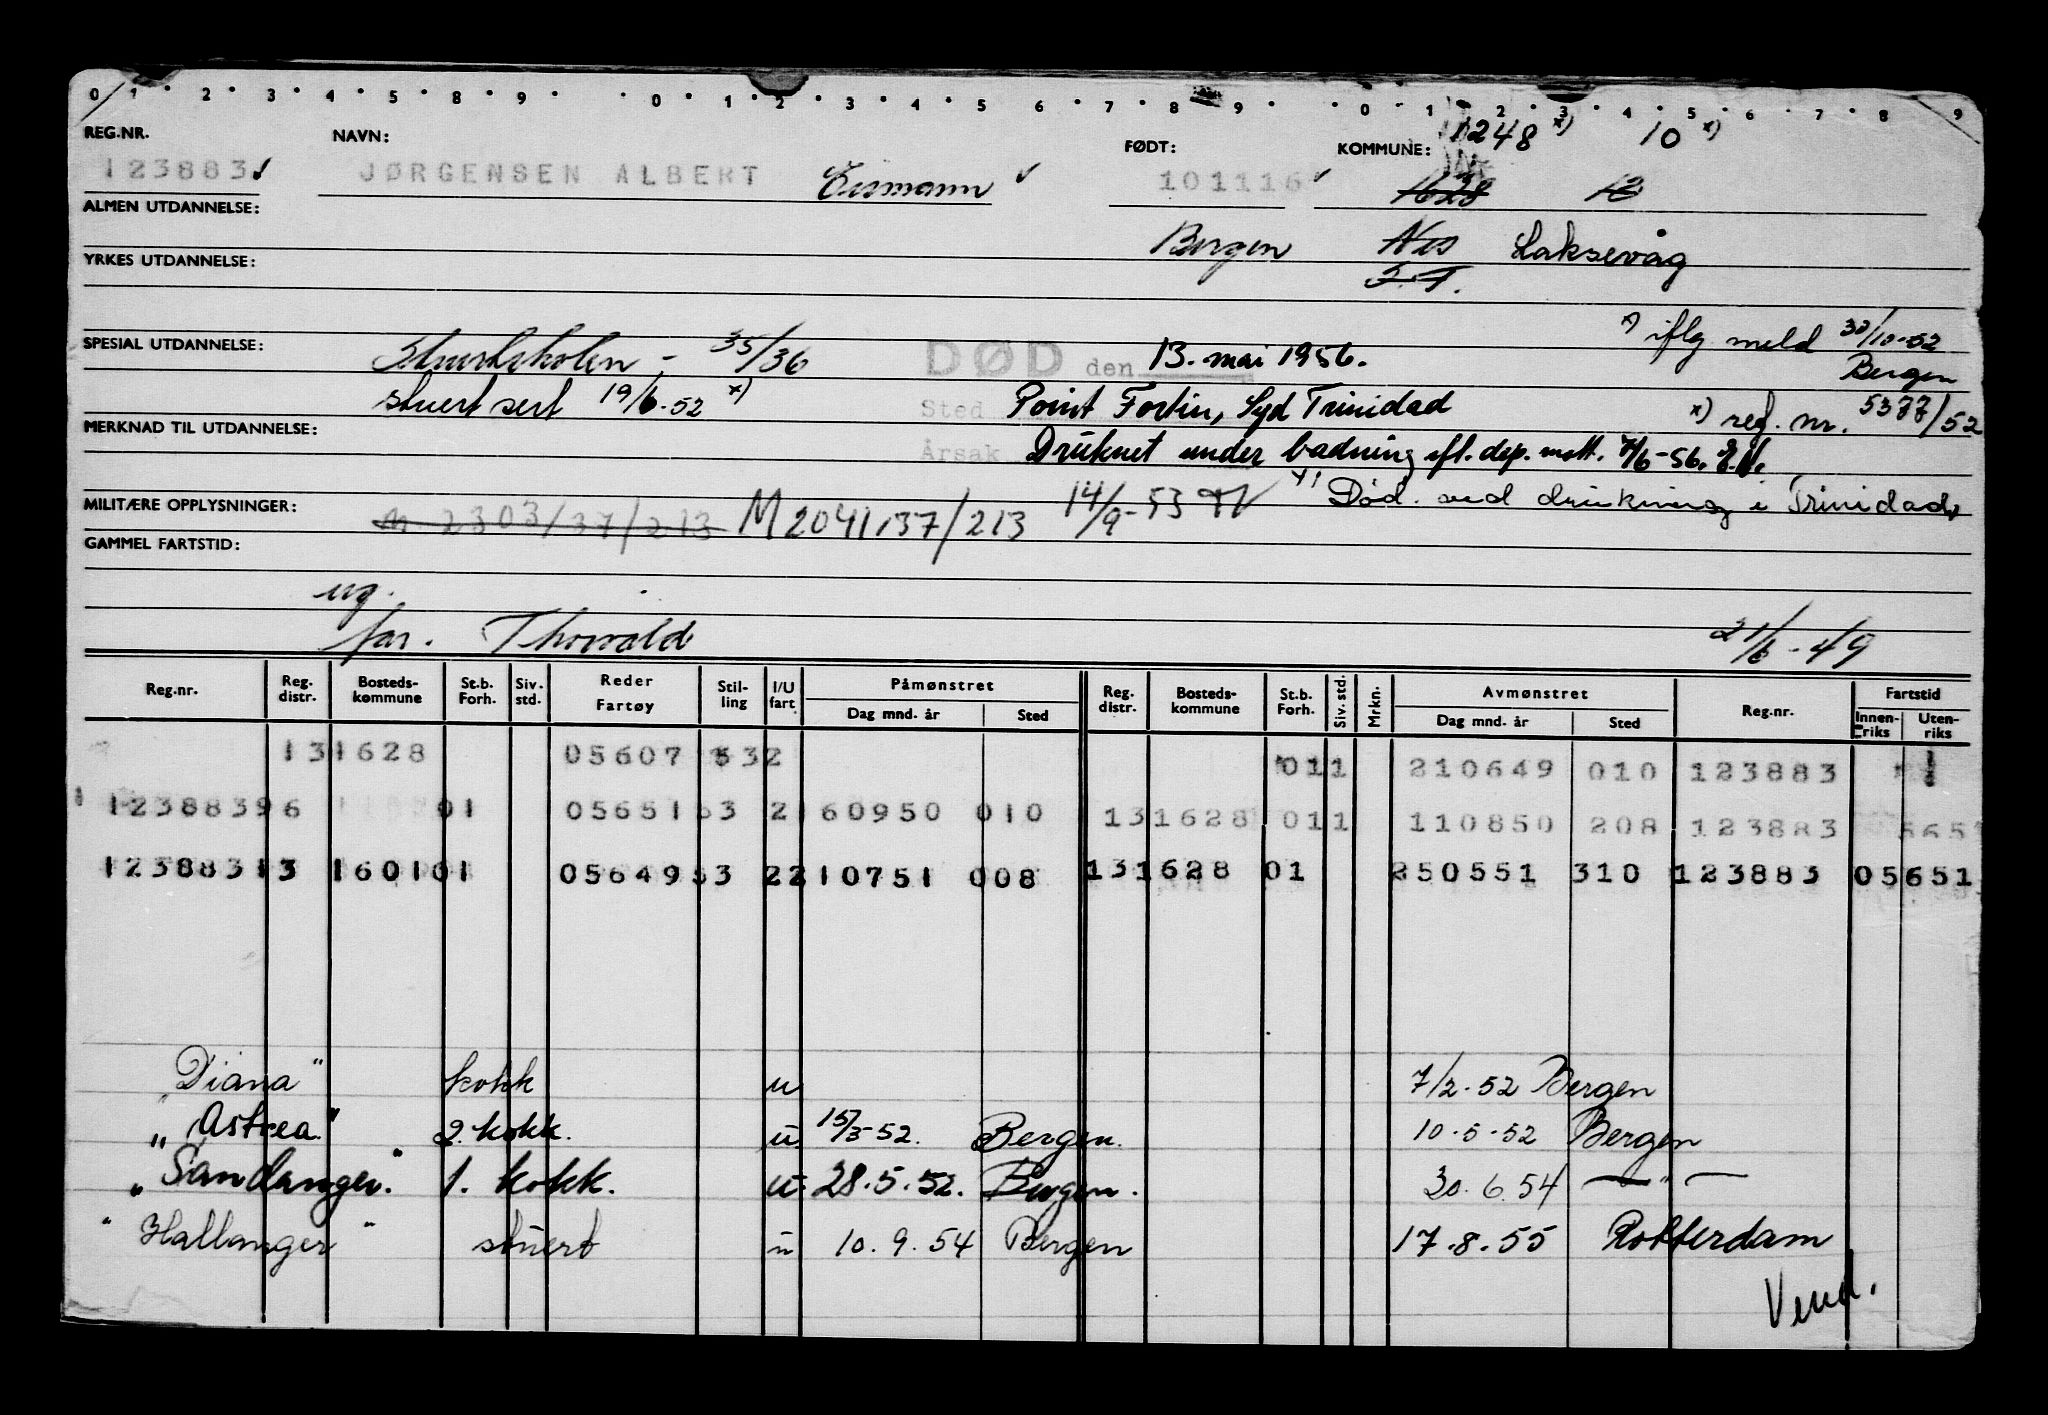 0 1 2 3 4 5 8 9 0 1 2 3 4 5 6 7 8 9 0 1 2 3 4 5 6 7 8 9
REG.NR. NAVN: FØDT: KOMMUNE: 1248 x) 10 x)
123883 JØRGENSEN ALBERT 101116 1628 12
ALMEN UTDANNELSE:
Bergen Nes Laksevåg
S.T.
YRKES UTDANNELSE:
x) iflg meld 30/10-52
Bergen
SPESIAL UTDANNELSE: Stuertskolen - 35/36 DØD den 13. mai 1956.
stuert sert 19/6.52 x) Sted Point Fortin, Syd Trinidad x) reg. nr. 5377/52
MERKNAD TIL UTDANNELSE: Årsak Druknet under badning efl. dep. mott. 7/6-56.
MILITÆRE OPPLYSNINGER: M 2303/37/213 M 2041/37/213 14/9-53 Død ved drukning i Trinidad
GAMMEL FARTSTID:
ug.
far. Thorvald 21/6-49
Reg.nr. Reg. distr. Bosteds- kommune St.b. Forh. Siv. std. Reder Fartøy Stil- ling I/U fart Påmønstret Dag mnd. år Sted Reg. distr. Bosteds- kommune St.b. Forh. Siv. std. Mrkn. Avmønstret Dag mnd. år Sted Reg.nr. Fartstid Innen- riks Uten- riks
131628 05607 532 011 210649 010 123883
12388396 01 05651 53 2 160950 010 131628 011 110850 208 123883 565
12388313 160101 05649 53 2 210751 008 131628 01 250551 310 123883 05651
"Diana" kokk u 7/2.52 Bergen
"Astrea." 2. kokk. u 15/3-52. Bergen. 10.5.52 Bergen
"Sandanger." 1. kokk. u 28.5.52. Bergen. 30.6.54 — " —
"Hallanger" stuert u 10.9.54 Bergen 17.8.55 Rotterdam
Vend.